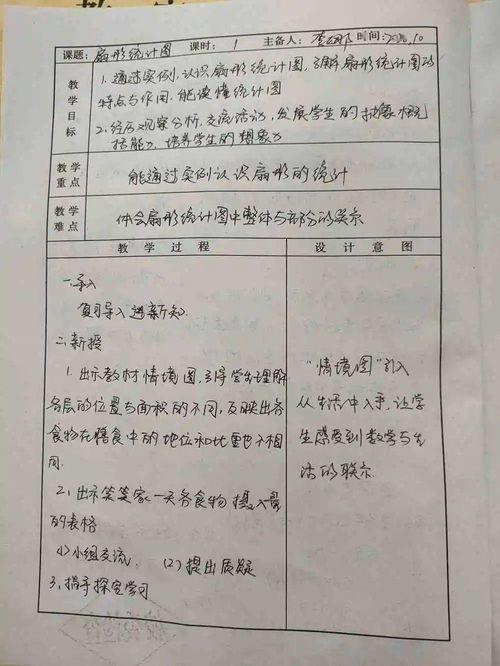 课题：扇形统计图 课时：1 主备人： 时间：
教学目标
1.通过实例，认识扇形统计图，了解扇形统计图的
特点与作用，能读懂统计图
2.经历观察分析，交流活动，发展学生的抽象概
括能力，培养学生的想象力
教学重点
能通过实例认识扇形的统计
教学难点
体会扇形统计图中整体与部分的关系
教学过程 设计意图
一.导入
复习导入进新知.
二.新授
1.出示教材情境图，引导学生理解
各层的位置与面积的不同，反映出各
食物在膳食中的地位和比重也不相
同.
2.出示笑笑家一天各食物摄入量
的表格
(1)小组交流. (2)提出质疑
3.指导探究学习
"情境图"引入
从生活中入手，让学
生感受到数学与生
活的联系